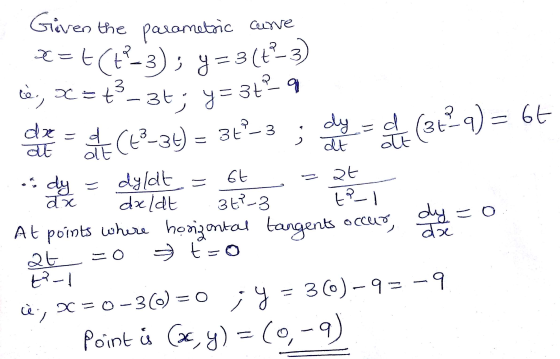 Given the parametric curve
x = t(t²-3) ; y = 3(t²-3)
ie., x = t³-3t ; y = 3t²-9
dx/dt = d/dt (t³-3t) = 3t²-3 ; dy/dt = d/dt (3t²-9) = 6t
∴ dy/dx = (dy/dt)/(dx/dt) = 6t/(3t²-3) = 2t/(t²-1)
At points where horizontal tangents occur, dy/dx = 0
2t/(t²-1) = 0 ⇒ t=0
ie., x = 0-3(0) = 0 ; y = 3(0)-9 = -9
Point is (x,y) = (0,-9)